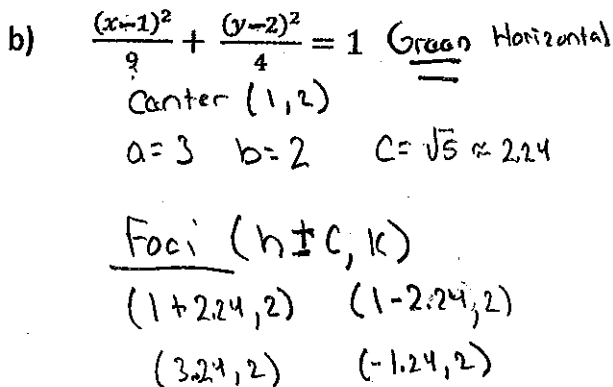 b) (x-1)²/9 + (y-2)²/4 = 1 Green Horizontal
Center (1,2)
a=3 b=2 c=√5 ≈ 2.24
Foci (h±c, k)
(1+2.24, 2) (1-2.24, 2)
(3.24, 2) (-1.24, 2)